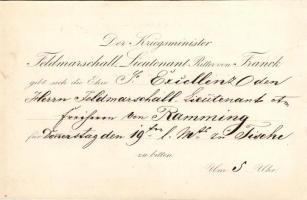 Der Kriegsminister
Feldmarschall-Lieutenant Ritter von Franck
gibt sich die Ehre Sr Excellenz den
Herrn Feldmarschall-Lieutenant
Freiherrn von Ramming
für Donnerstag den 19ten l. Mts zu Tische
zu bitten.
Um 5 Uhr.